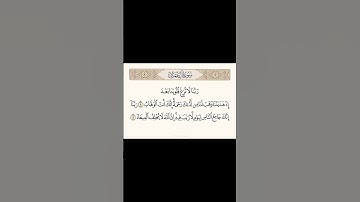 رَبَّنَا لَا تُزِغْ قُلُوبَنَا بَعْدَ
إِذْ هَدَيْتَنَا وَهَبْ لَنَا مِن لَّدُنكَ رَحْمَةً إِنَّكَ أَنتَ الْوَهَّابُ ٨ رَبَّنَا
إِنَّكَ جَامِعُ النَّاسِ لِيَوْمٍ لَّا رَيْبَ فِيهِ إِنَّ اللَّهَ لَا يُخْلِفُ الْمِيعَادَ ٩